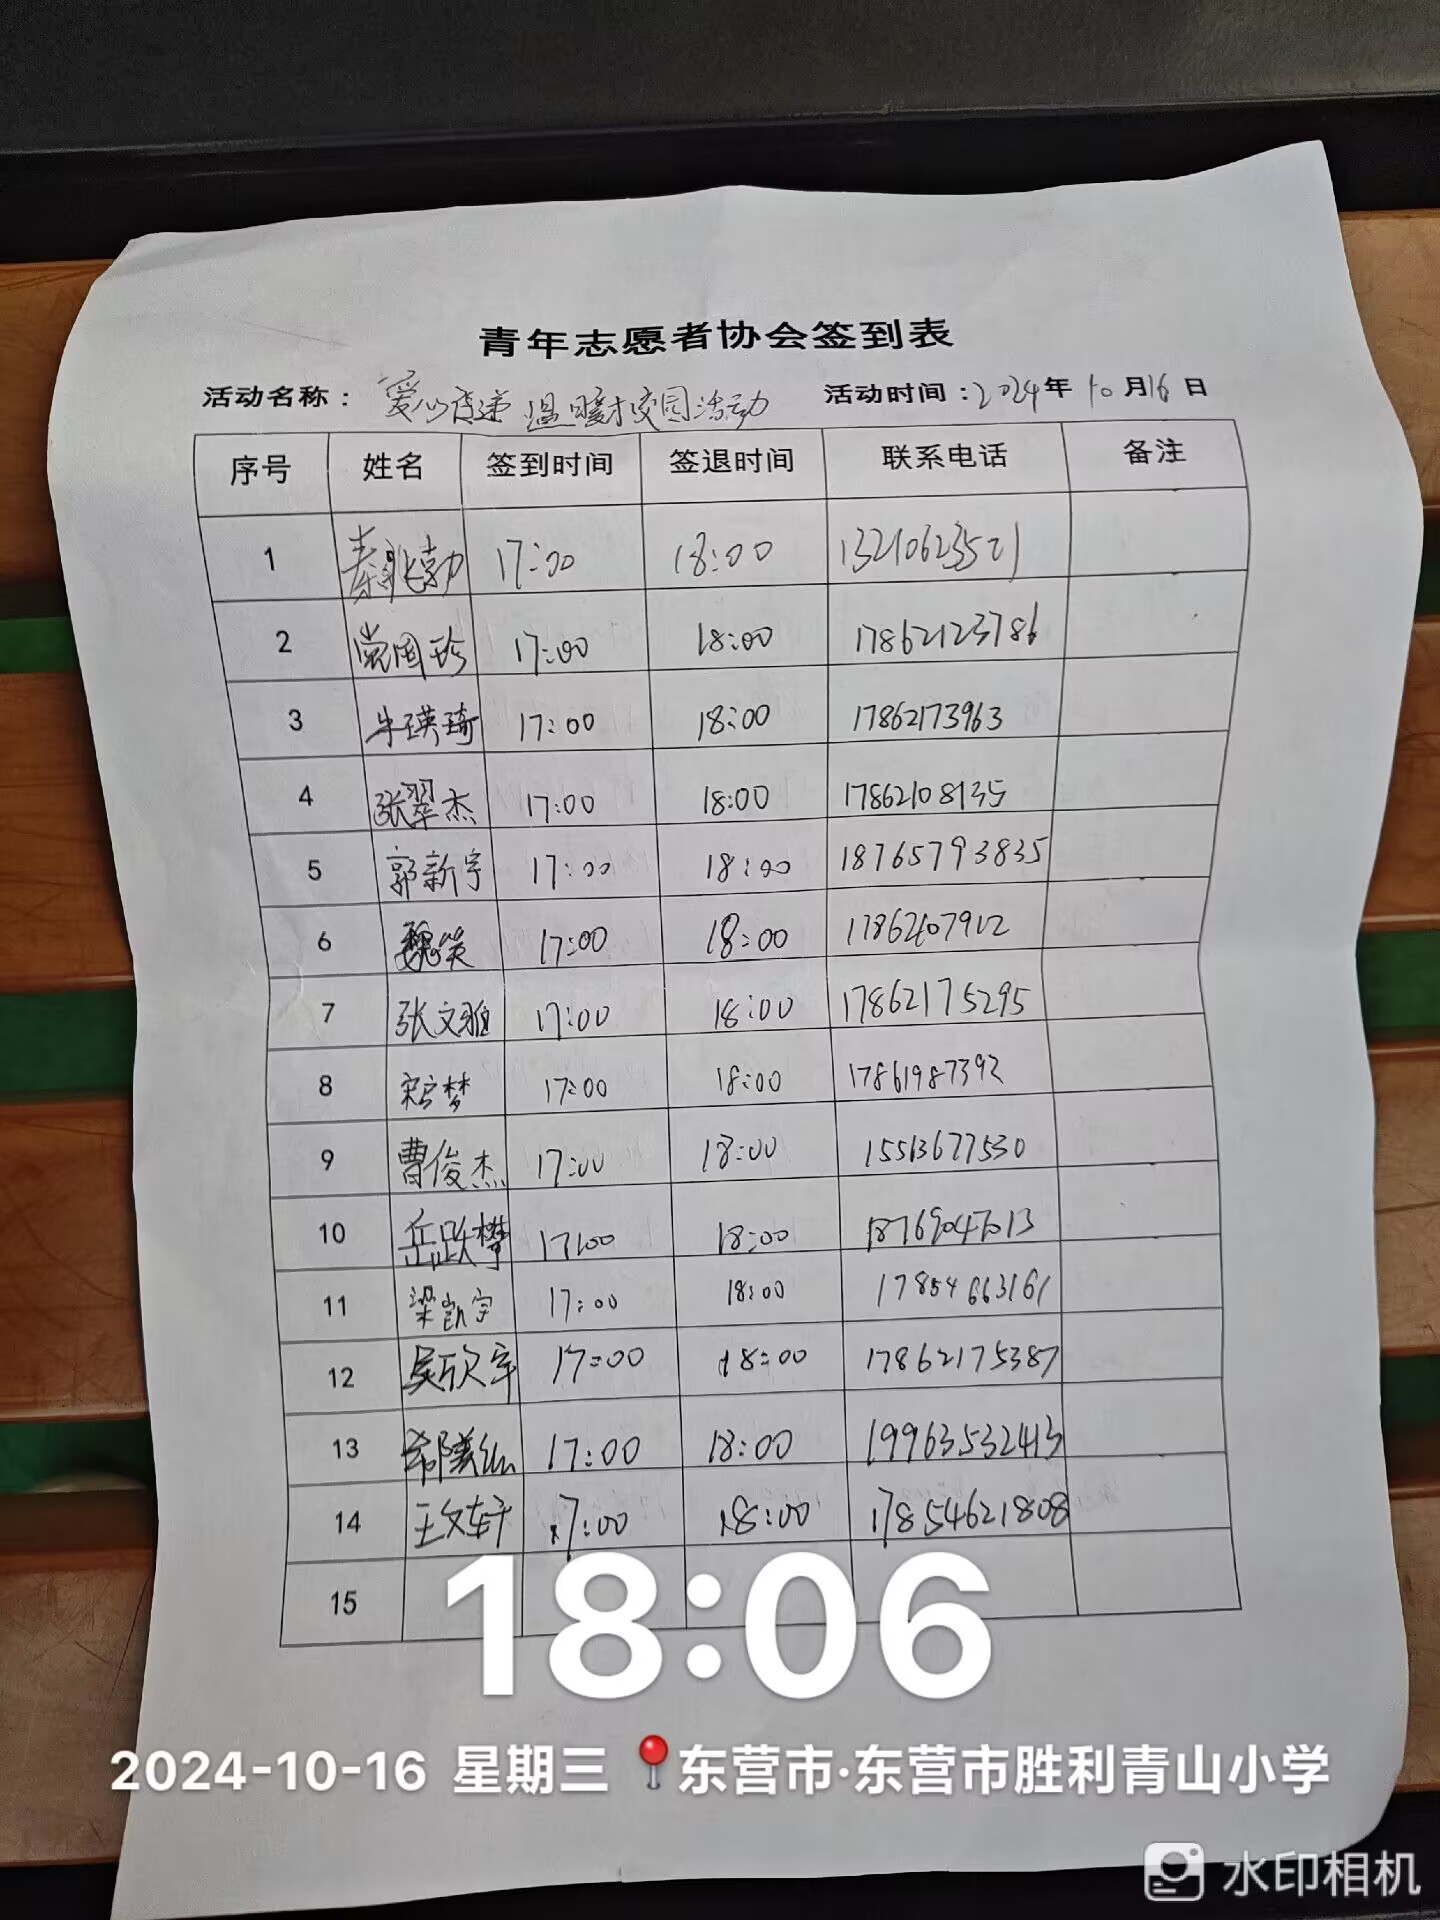 青年志愿者协会签到表
活动名称：爱心传递 温暖校园活动 活动时间：2024年10月16日
序号 姓名 签到时间 签退时间 联系电话 备注
1 秦兆勃 17:00 18:00 13210623521
2 党国珍 17:00 18:00 17862123786
3 朱瑛琦 17:00 18:00 17862173963
4 张翠杰 17:00 18:00 17862108135
5 郭新宇 17:00 18:00 18765793835
6 魏笑 17:00 18:00 17862107912
7 张文雅 17:00 18:00 17862175295
8 梦 17:00 18:00 17861987392
9 曹俊杰 17:00 18:00 15513677530
10 岳跃攀 17:00 18:00 18769047013
11 梁凯宇 17:00 18:00 17854663161
12 吴欣宇 17:00 18:00 17862175387
13 17:00 18:00 19963532413
14 王文轩 17:00 18:00 17854621808
15
18:06
2024-10-16 星期三 东营市·东营市胜利青山小学
水印相机